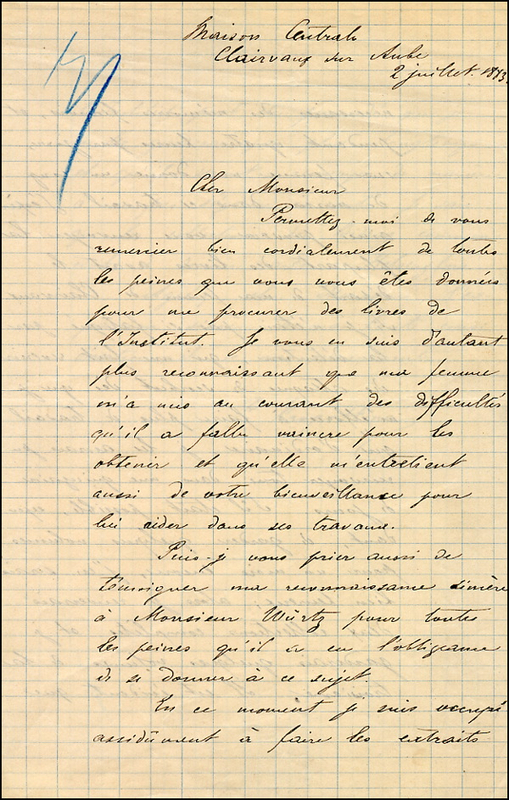 Maison Centrale
Clairvaux sur Aube
2 juillet. 1883.
Cher Monsieur
Permettez-moi de vous
remercier bien cordialement de toutes
les peines que vous vous êtes données
pour me procurer des livres de
l'Institut. Je vous en suis d'autant
plus reconnaissant que ma femme
m'a mis au courant des difficultés
qu'il a fallu vaincre pour les
obtenir et qu'elle m'entretient
aussi de votre bienveillance pour
lui aider dans ses travaux.
Puis-j vous prier aussi de
témoigner ma reconnaissance sincère
à Monsieur Würtz pour toutes
les peines qu'il a eu l'obligeance
de se donner à ce sujet.
En ce moment je suis occupé
assidûment à faire les extraits